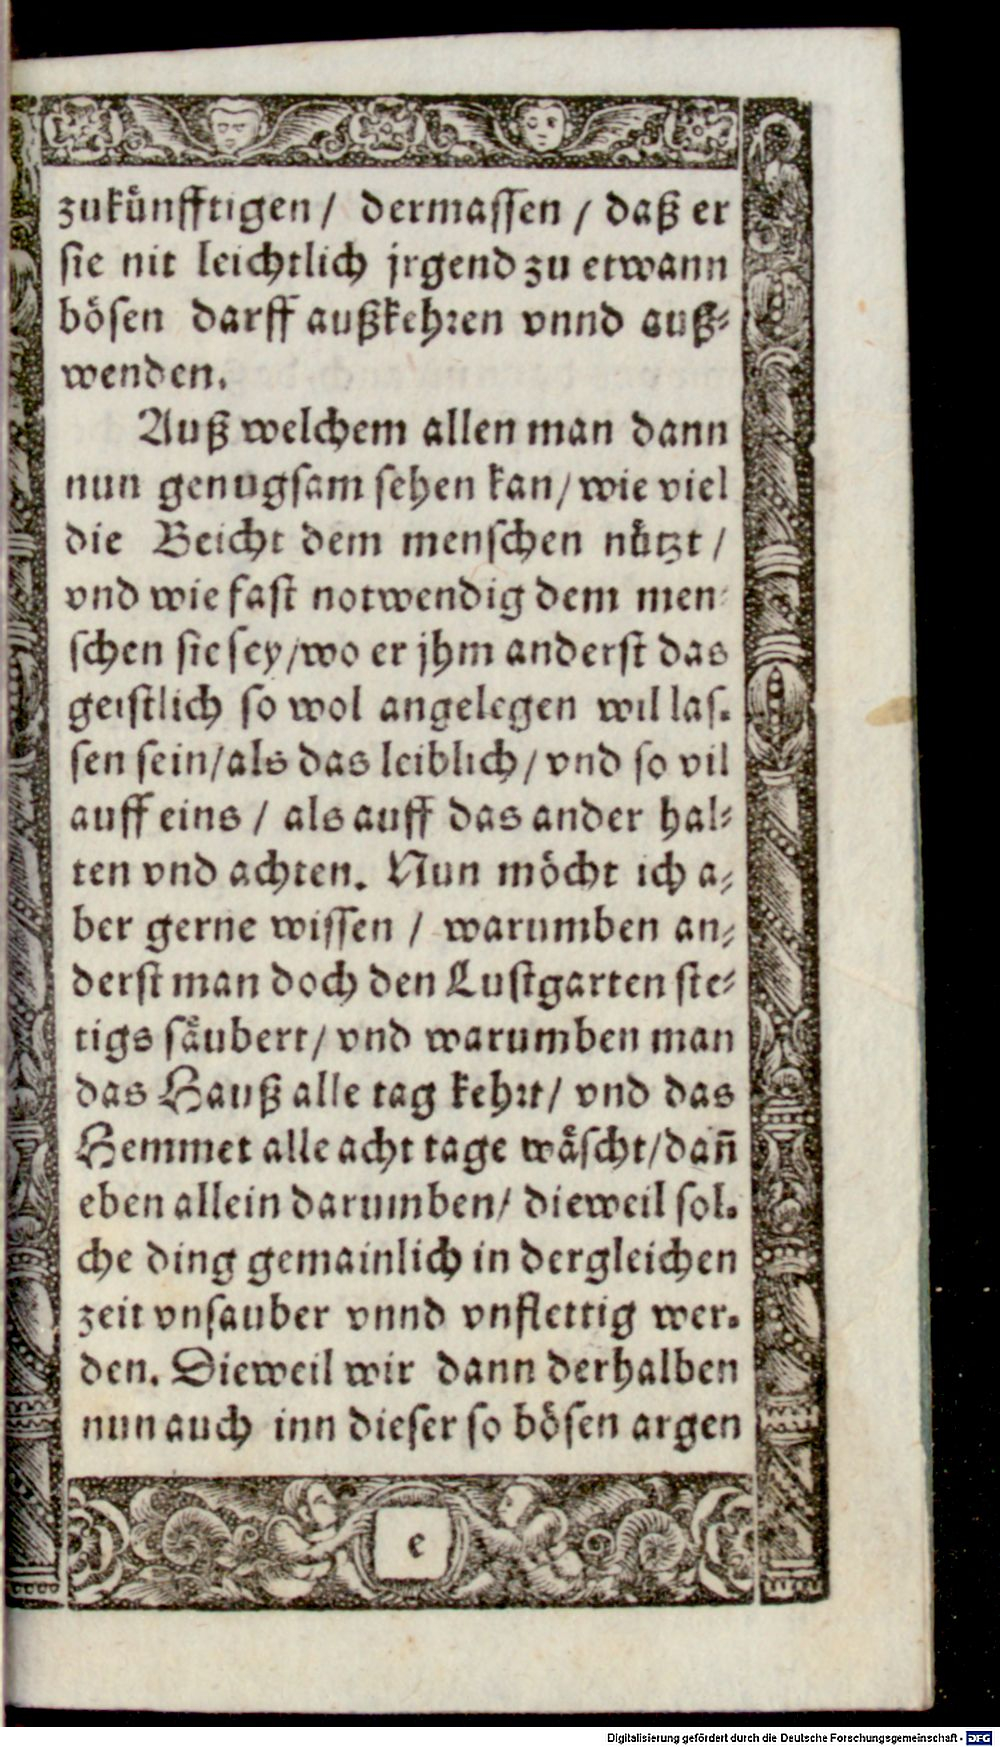 zukuͤnfftigen / dermassen / daß er
sie nit leichtlich jrgend zu etwann
boͤsen darff außkehren vnnd auß⸗
wenden.
Auß welchem allen man dann
nun genugsam sehen kan / wie viel
die Beicht dem menschen nuͤtzt /
vnd wie fast notwendig dem men⸗
schen sie sey / wo er jhm anderst das
geistlich so wol angelegen wil las⸗
sen sein / als das leiblich / vnd so vil
auff eins / als auff das ander hal⸗
ten vnd achten. Nun moͤcht ich a⸗
ber gerne wissen / warumben an⸗
derst man doch den Lustgarten ste⸗
tigs saͤubert / vnd warumben man
das Hauß alle tag kehrt / vnd das
Hemmet alle acht tage waͤscht / dañ
eben allein darumben / dieweil sol⸗
che ding gemainlich in dergleichen
zeit vnsauber vnnd vnflettig wer⸗
den. Dieweil wir dann derhalben
nun auch inn dieser so boͤsen argen
e
Digitalisierung gefördert durch die Deutsche Forschungsgemeinschaft - DFG